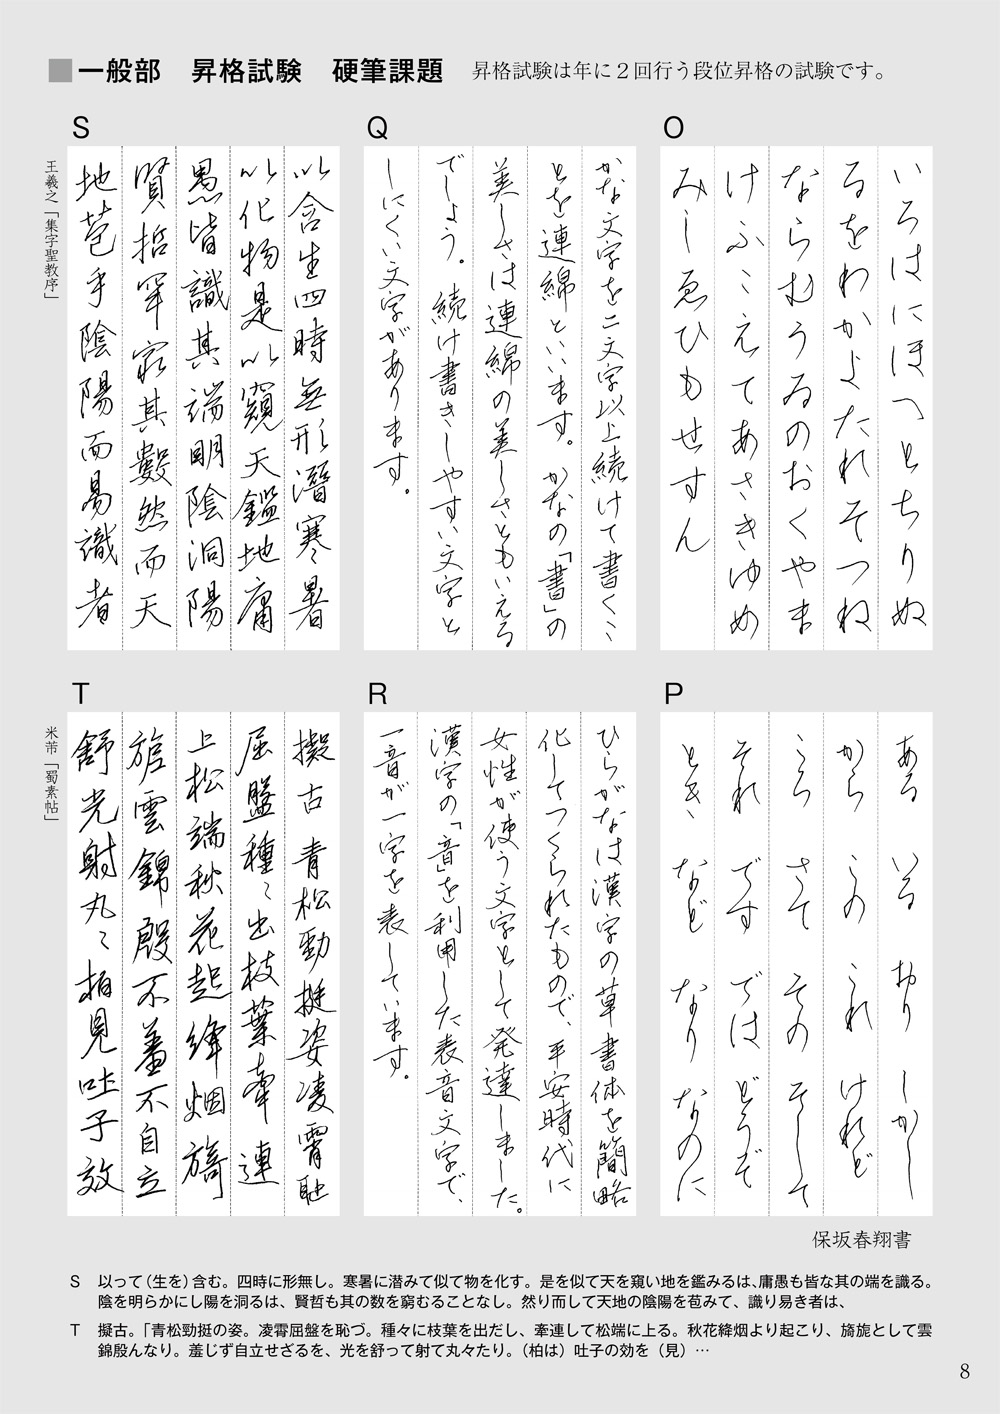 ■一般部　昇格試験　硬筆課題　昇格試験は年に２回行う段位昇格の試験です。
O
いろはにほへとちりぬ
るをわかよたれそつね
ならむうゐのおくやま
けふこえてあさきゆめ
みしゑひもせすん
Q
かな文字を二文字以上続けて書くこ
とを連綿といいます。かなの「書」の
美しさは連綿の美しさともいえる
でしょう。続け書きしやすい文字と
しにくい文字があります。
S
以含生四時無形潛寒暑
以化物是以窺天鑑地庸
愚皆識其端明陰洞陽
賢哲罕窮其數然而天
地苞乎陰陽而易識者
王羲之「集字聖教序」
P
ある　いる　おり　しかし
から　この　これ　けれど
ころ　さて　その　そして
それ　です　では　どうぞ
とき　など　なり　なのに
R
ひらがなは漢字の草書体を簡略
化してつくられたもので、平安時代に
女性が使う文字として発達しました。
漢字の「音」を利用した表音文字で、
一音が一字を表しています。
T
擬古　青松勁挺姿凌霄耻
屈盤種々出枝葉牽連
上松端秋花起絳烟旖
旎雲錦殷不羞不自立
舒光射丸々柏見吐子效
米芾「蜀素帖」
保坂春翔書
S　以って（生を）含む。四時に形無し。寒暑に潜みて似て物を化す。是を似て天を窺い地を鑑みるは、庸愚も皆な其の端を識る。
陰を明らかにし陽を洞るは、賢哲も其の数を窮むることなし。然り而して天地の陰陽を苞みて、識り易き者は、
T　擬古。「青松勁挺の姿。凌霄屈盤を恥づ。種々に枝葉を出だし、牽連して松端に上る。秋花絳烟より起こり、旖旎として雲
錦殷んなり。羞じず自立せざるを、光を舒って射て丸々たり。（柏は）吐子の効を（見）…
8